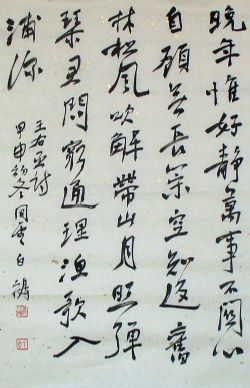 晚年惟好靜萬事不關心
自顧無長策空知返舊
林松風吹解帶山月照彈
琴君問窮通理漁歌入
浦深
王右丞詩
甲申初冬閒雲白